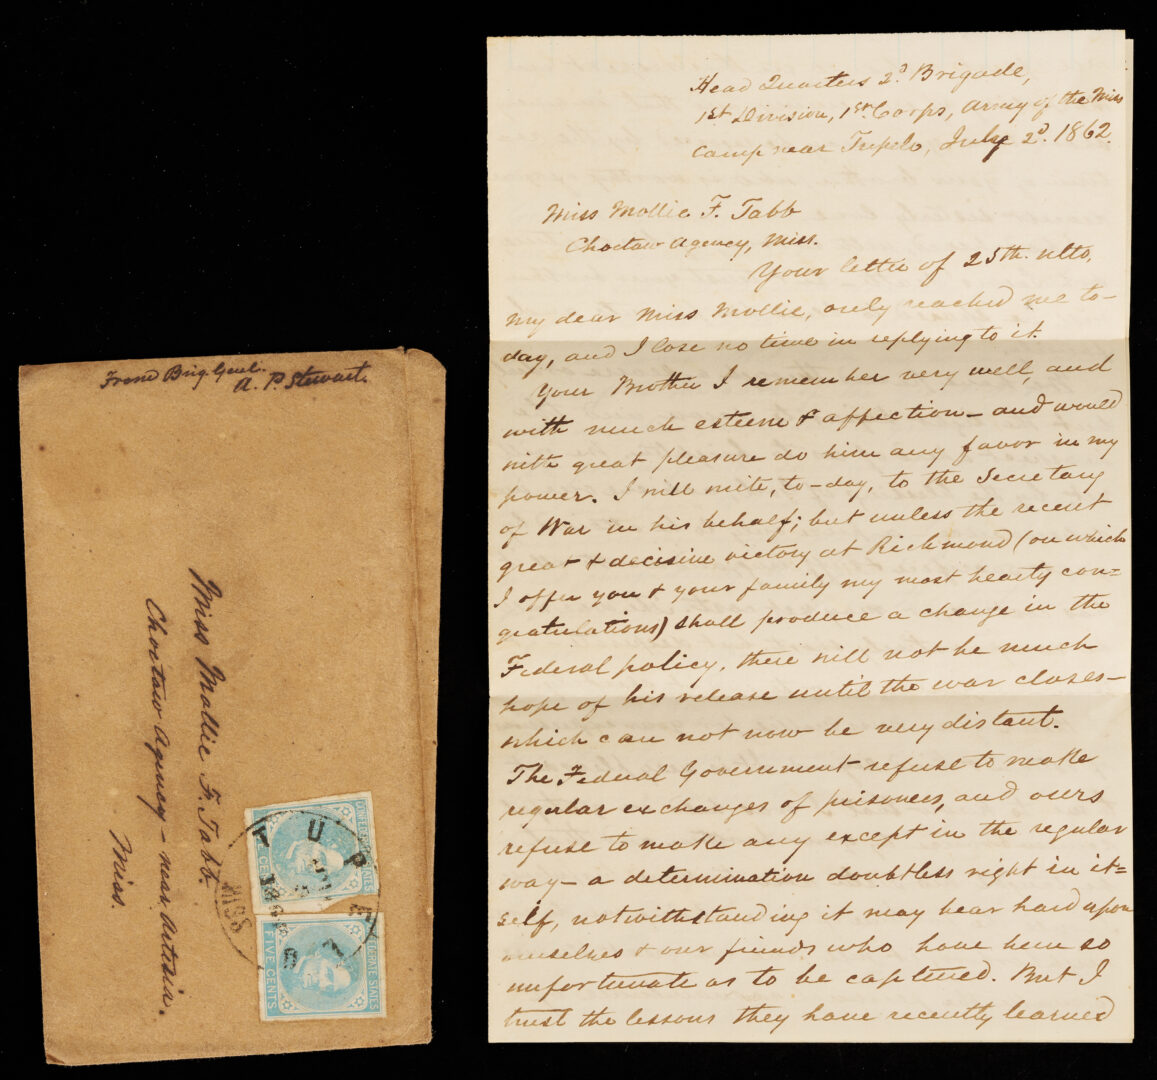 From Brig. Genl.
A. P. Stewart.
Miss Mollie F. Tabb.
Choctaw Agency - near Artesia.
Miss.
TUPELO
MISS
CONFEDERATE STATES
FIVE CENTS
CONFEDERATE STATES
FIVE CENTS
Head Quarters 2d. Brigade,
1st Division, 1st. Corps, Army of the Miss
Camp near Tupelo, July 2d. 1862.
Miss Mollie F. Tabb
Choctaw Agency, Miss.
Your letter of 25th. ulto,
my dear Miss Mollie, only reached me to-
day, and I lose no time in replying to it.
Your Brother I remember very well, and
with much esteem & affection - and would
with great pleasure do him any favor in my
power. I will write, to-day, to the Secretary
of War in his behalf; but unless the recent
great & decisive victory at Richmond (on which
I offer you & your family my most hearty con=
gratulations) shall produce a change in the
Federal policy, there will not be much
hope of his release until the war closes -
which can not now be very distant.
The Federal Government refuse to make
regular exchanges of prisoners, and ours
refuse to make any except in the regular
way - a determination doubtless right in it=
self, notwithstanding it may bear hard upon
ourselves & our friends who have been so
unfortunate as to be captured. But I
trust the lessons they have recently learned